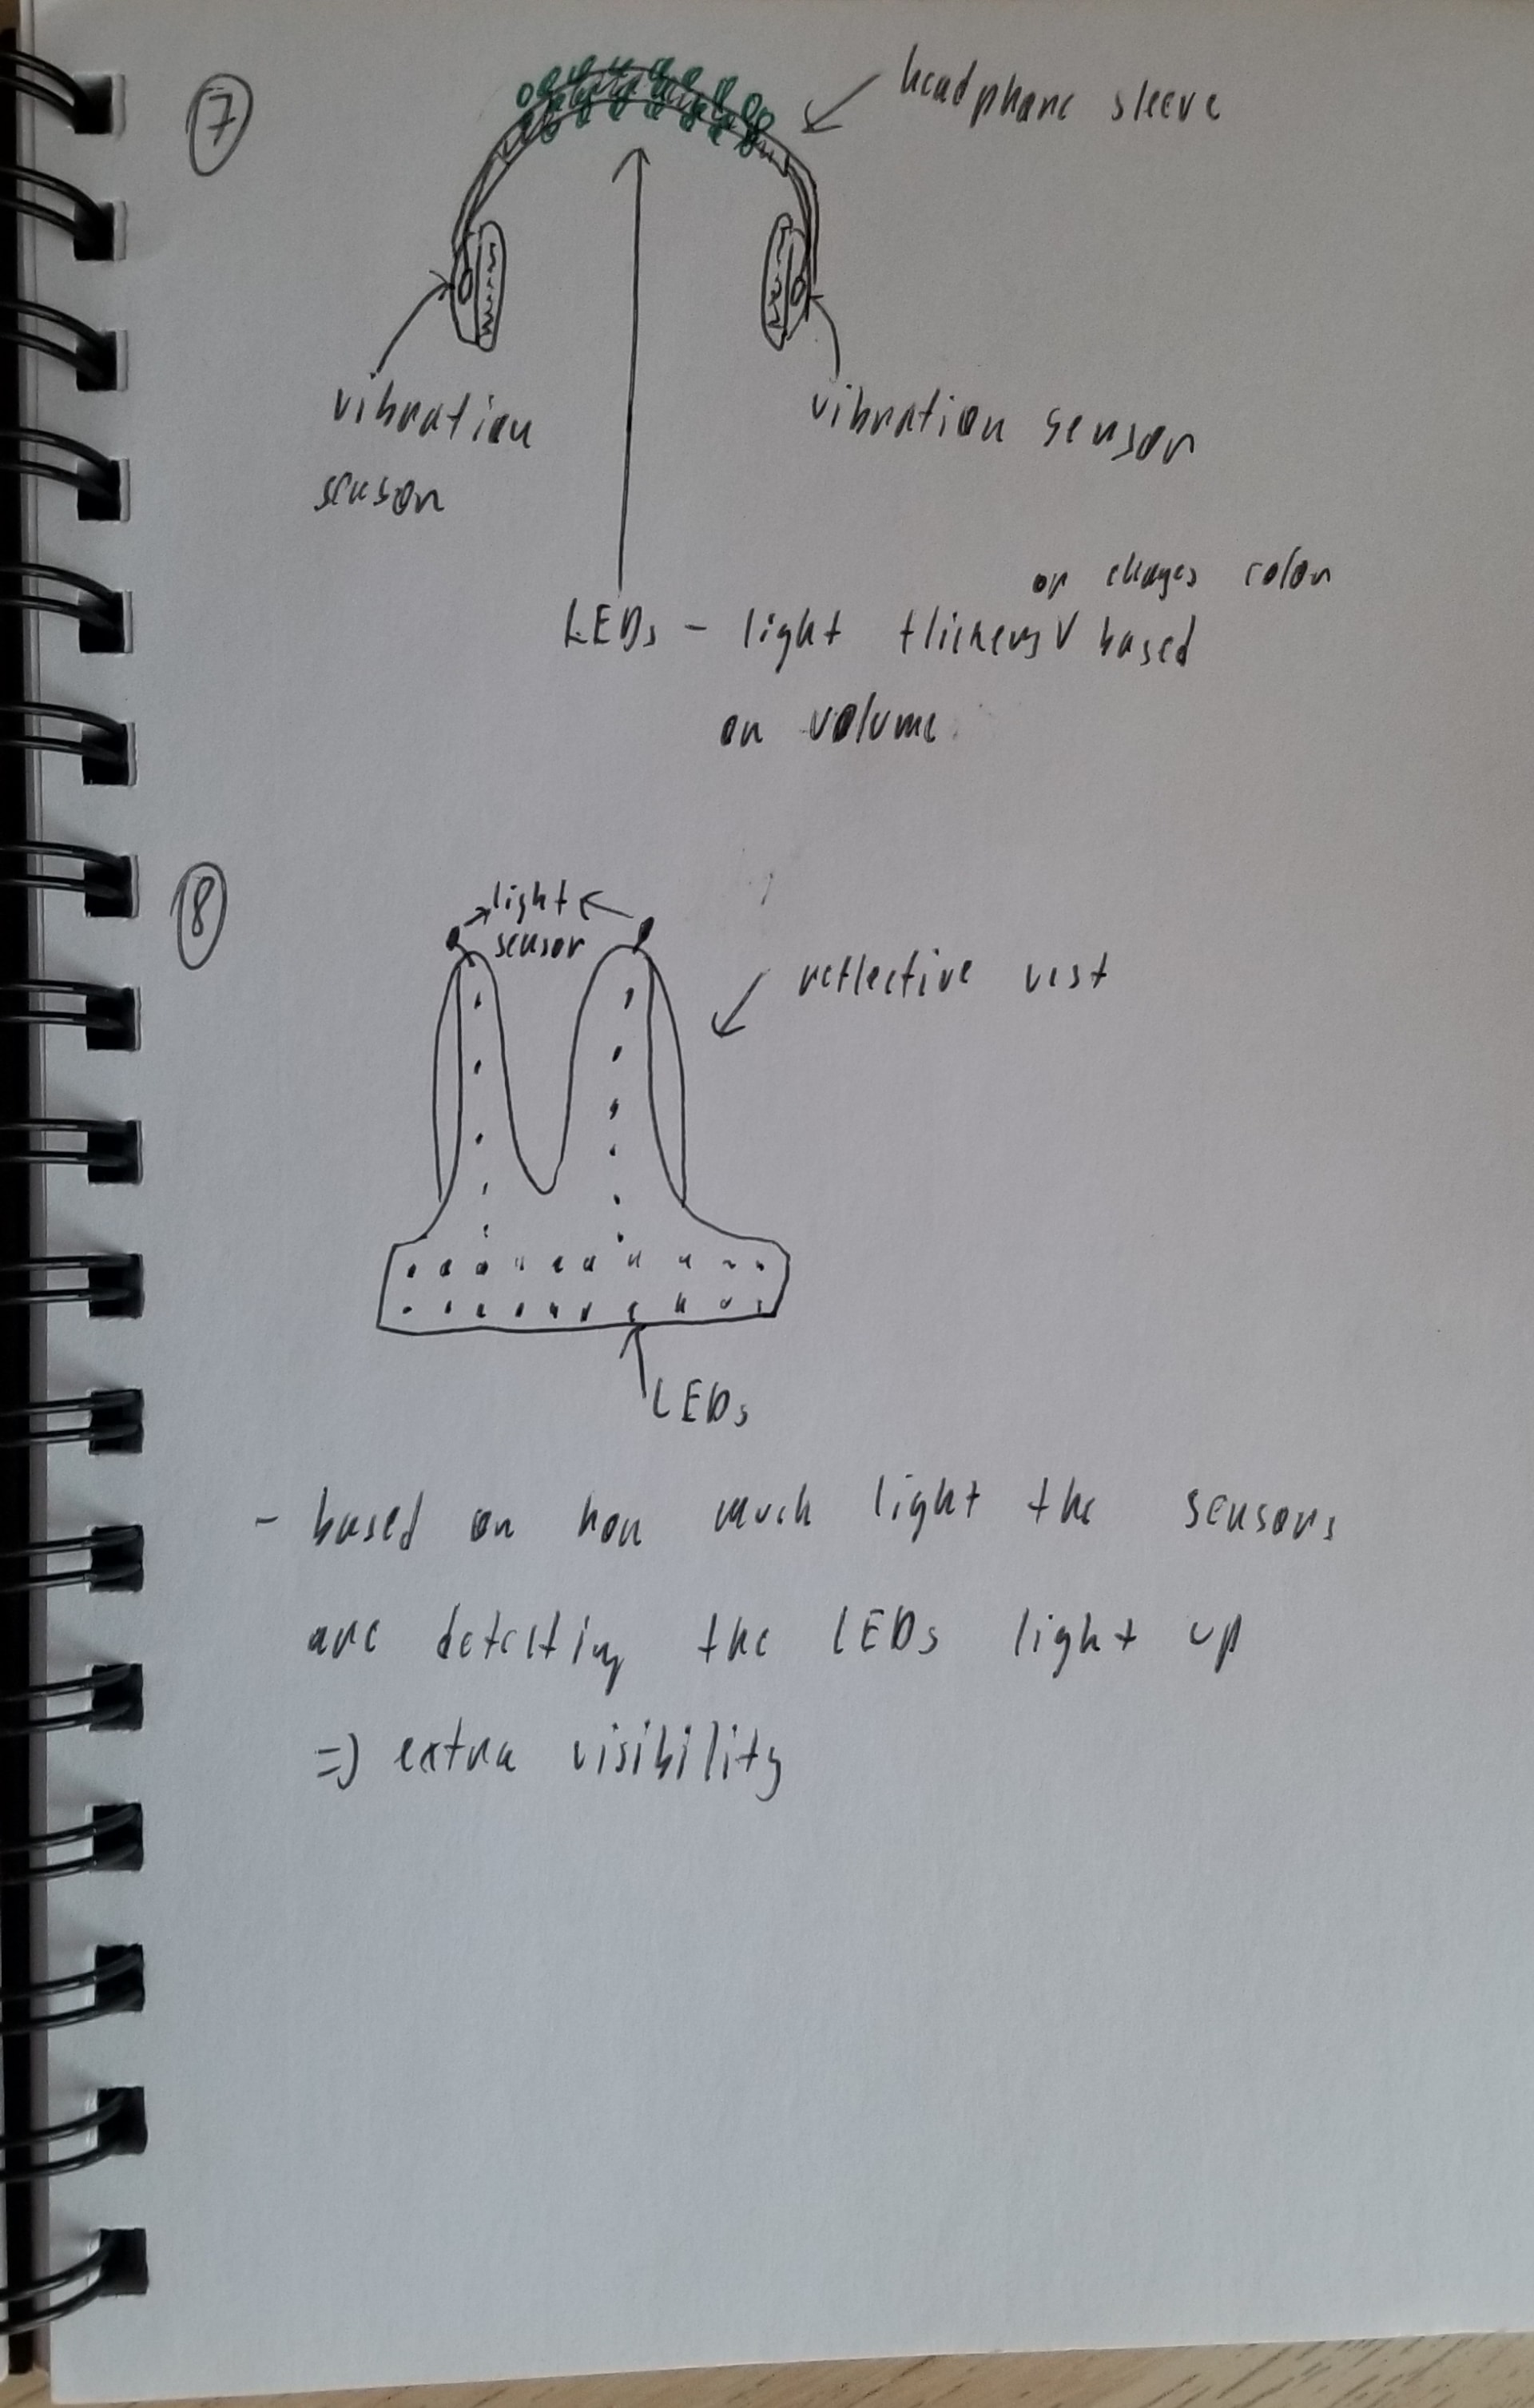 7
headphone sleeve
vibration
sensor
vibration sensor
or chages color
LEDs - light flickers V based
on volume
8
light
sensor
reflective vest
LEDs
- based on how much light the sensors
are detecting the LEDs light up
=> extra visibility